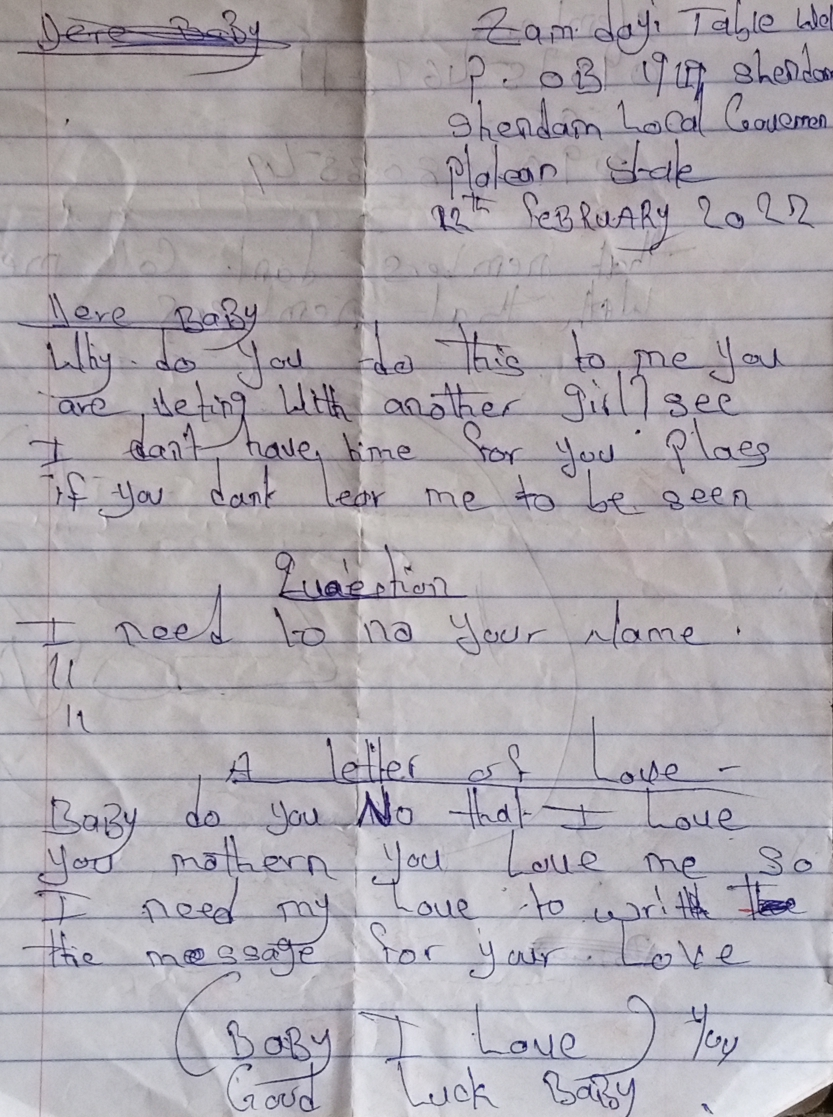 Dere Baby
Zam. day. Table Wel
P. OB 1919 Shendam
Shendam Local Gouemen
Platean State
22th FeBRUARY 2022
Dere BaBy
Why do you do this to me you
are deting With another girl? see
I dan't have time for you Plaes
if you dant lear me to be seen
Quaestion
I need to no your Name.
11
11
A letter of Love -
BaBy do you No that I Loue
you mothern you Loue me so
I need my Loue to writh
the message for your Love
(BaBy I Loue) You
Good Luck BaBy